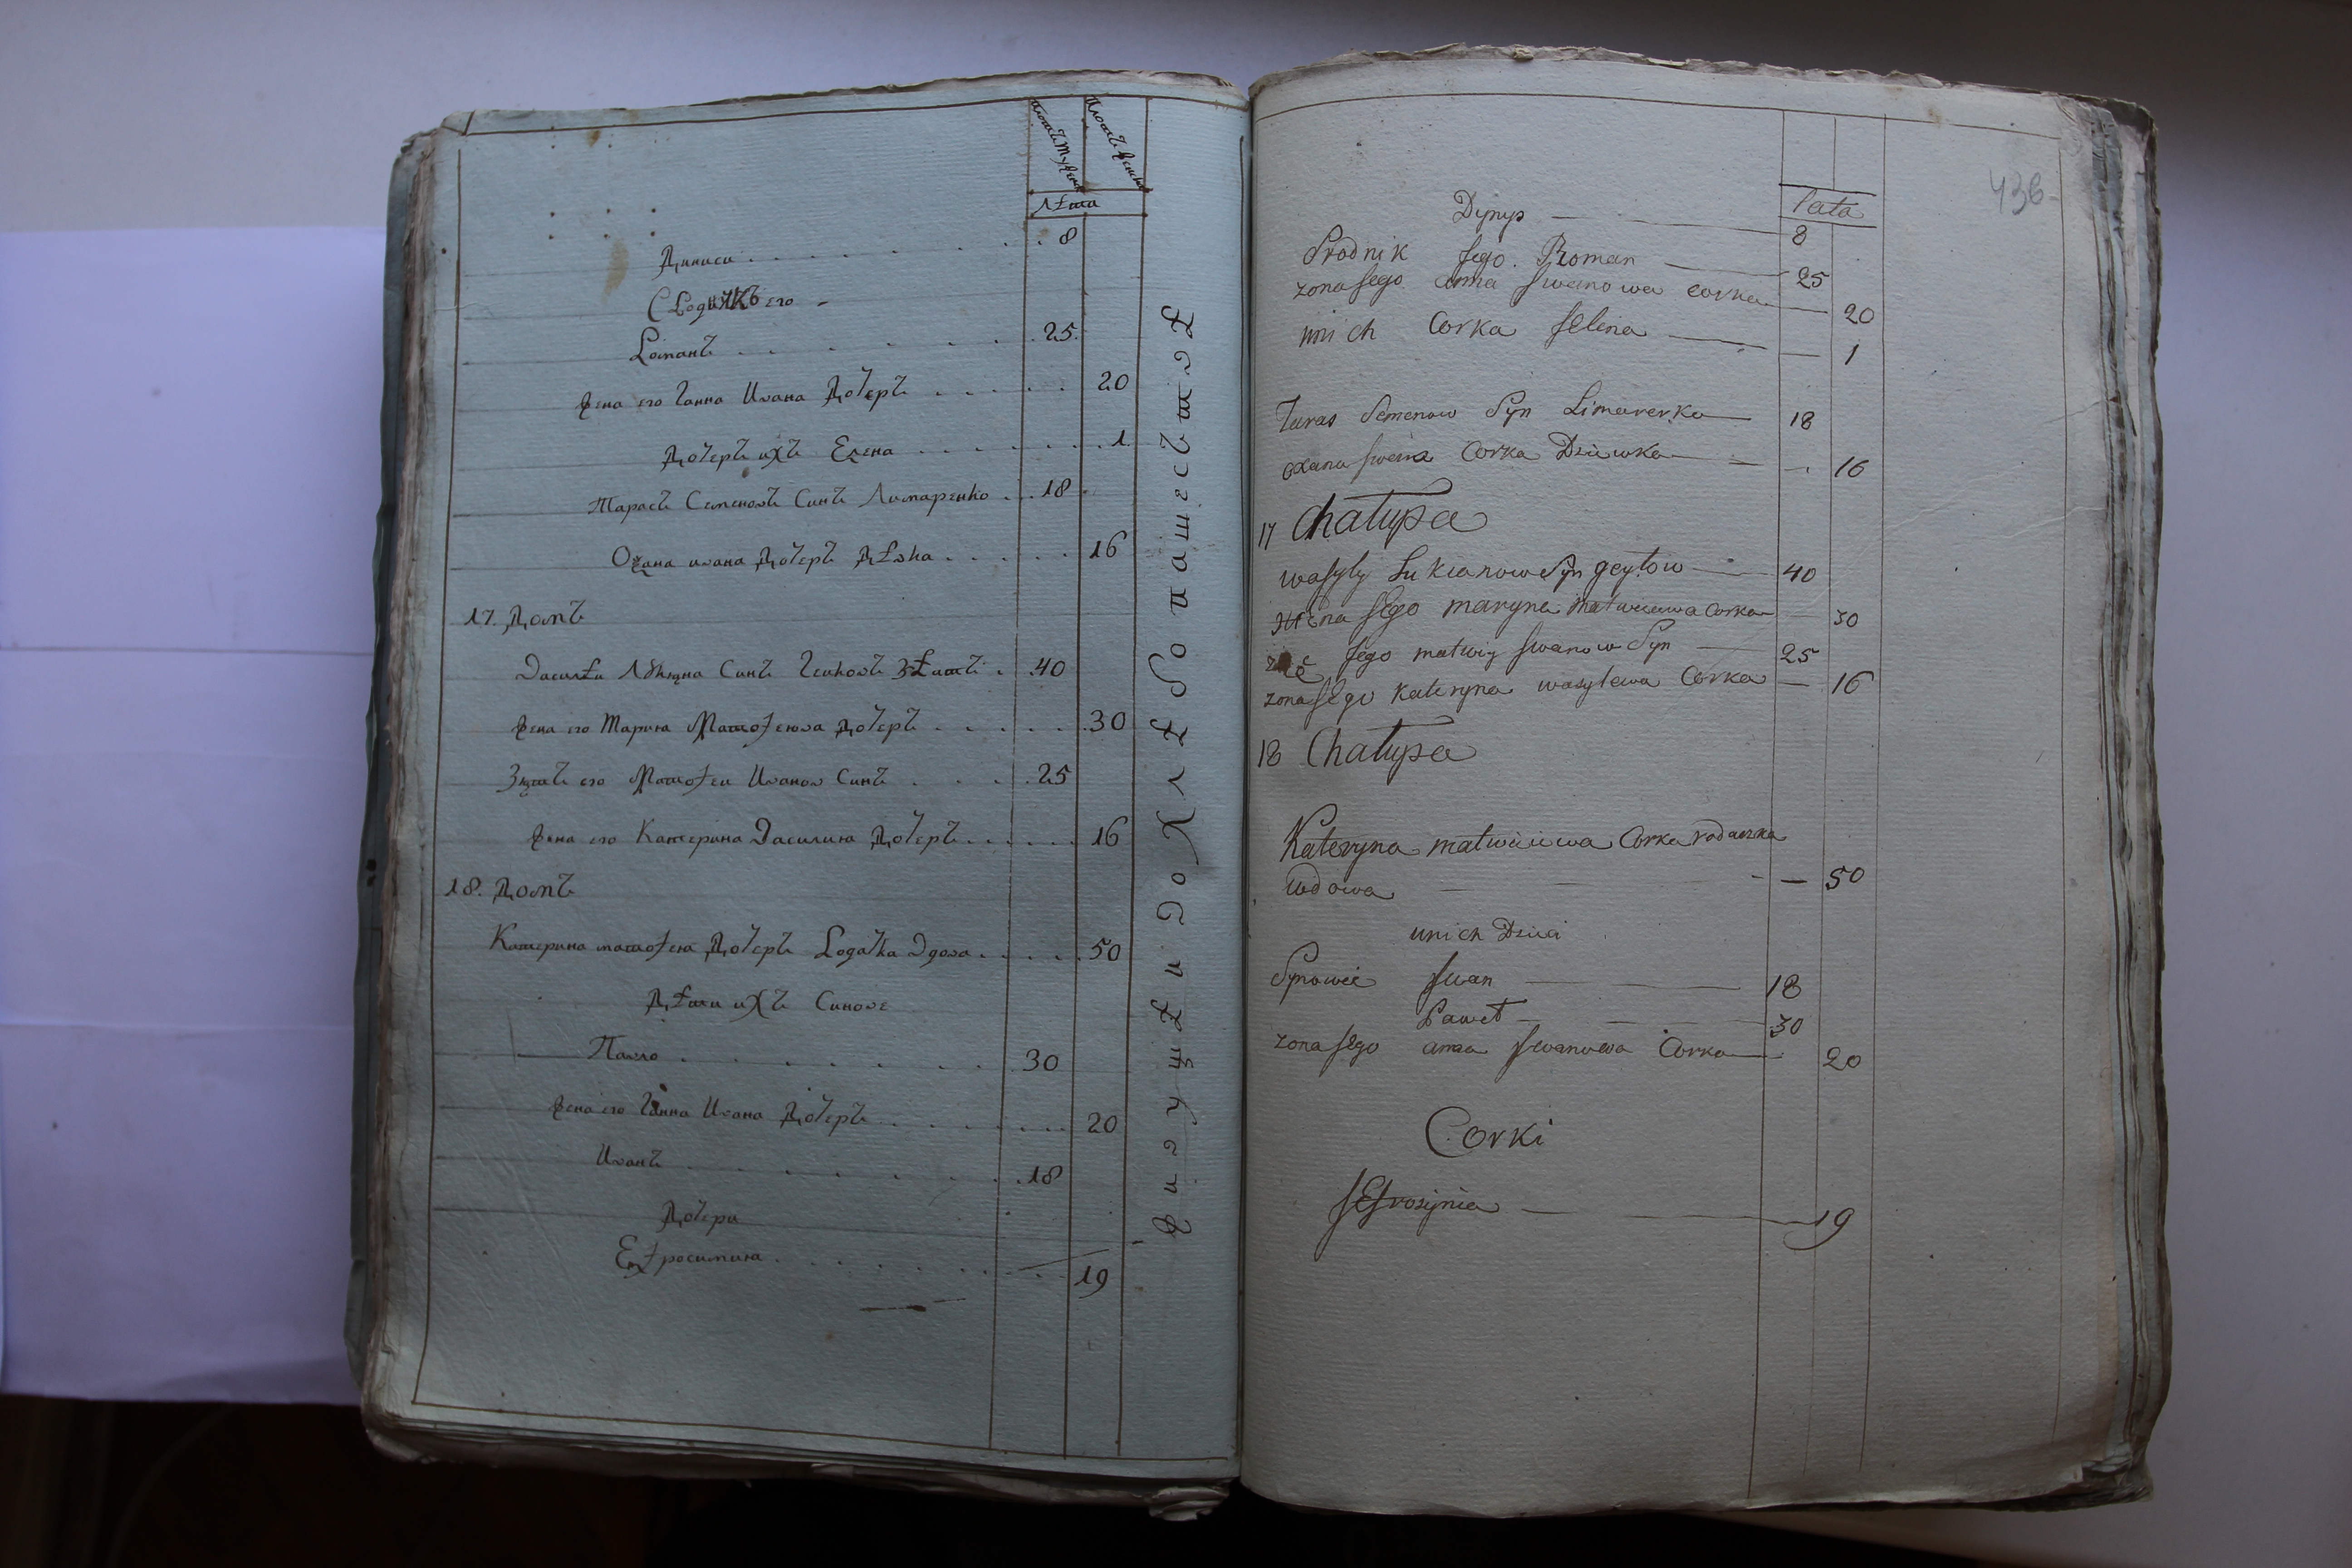 лѣта
Диниси . . . . . . . 8
Сродникъ его -
Романъ . . . . . . . 25.
жена его Ганна Ивана Дочеръ . . . . . 20
Дочеръ ихъ Елена . . . . . . . 1.
Тарасъ Семеновъ Синъ Лимаренко . . 18
Оѯана ивана Дочеръ Дѣвка . . . . . 16
17. Домъ
Василѣи Лꙋкяна Синъ . 40
жена его Марина Матѳеюва дочеръ . . . . . 30
Зять его Матѳеи Иванов Синъ . . . . 25
жена его Катерина Василия Дочеръ . . . . . 16
18. Домъ
Катерина матѳея Дочеръ Родачка Вдова . . . . . 50
Дѣти ихъ Синове
Павло . . . . . . . 30
жена его Ганна Ивана Дочеръ . . . . . . 20
Иванъ . . . . . . . 18
Дочери
Еѳросимия . . . . . . . 19
живущѣи до хлѣбопашествѣ
436
lata
Dynys — 8
Srodnik Jego. Roman — 25
zona Jego anna Jwanowa corka — 20
unich Corka Jelena — 1
Taras Semenow Syn Limarenko — 18
oxana Jwana Corka Dziewka — 16
17 Chałupa
wasyly Lukianow Syn geytow — 40
zona Jego maryna matweiewa Corka — 30
zięć Jego matwiy Jwanow Syn — 25
zona Jego Kateryna wasylewa Corka — 16
18 Chałupa
Kateryna matwieiewa Corka rodaczka
wdowa — 50
unich Dzieci
Synowie Jwan — 18
Paweł — 30
zona Jego anna Jwanowa Corka — 20
Corki
JEfrosynia — 19